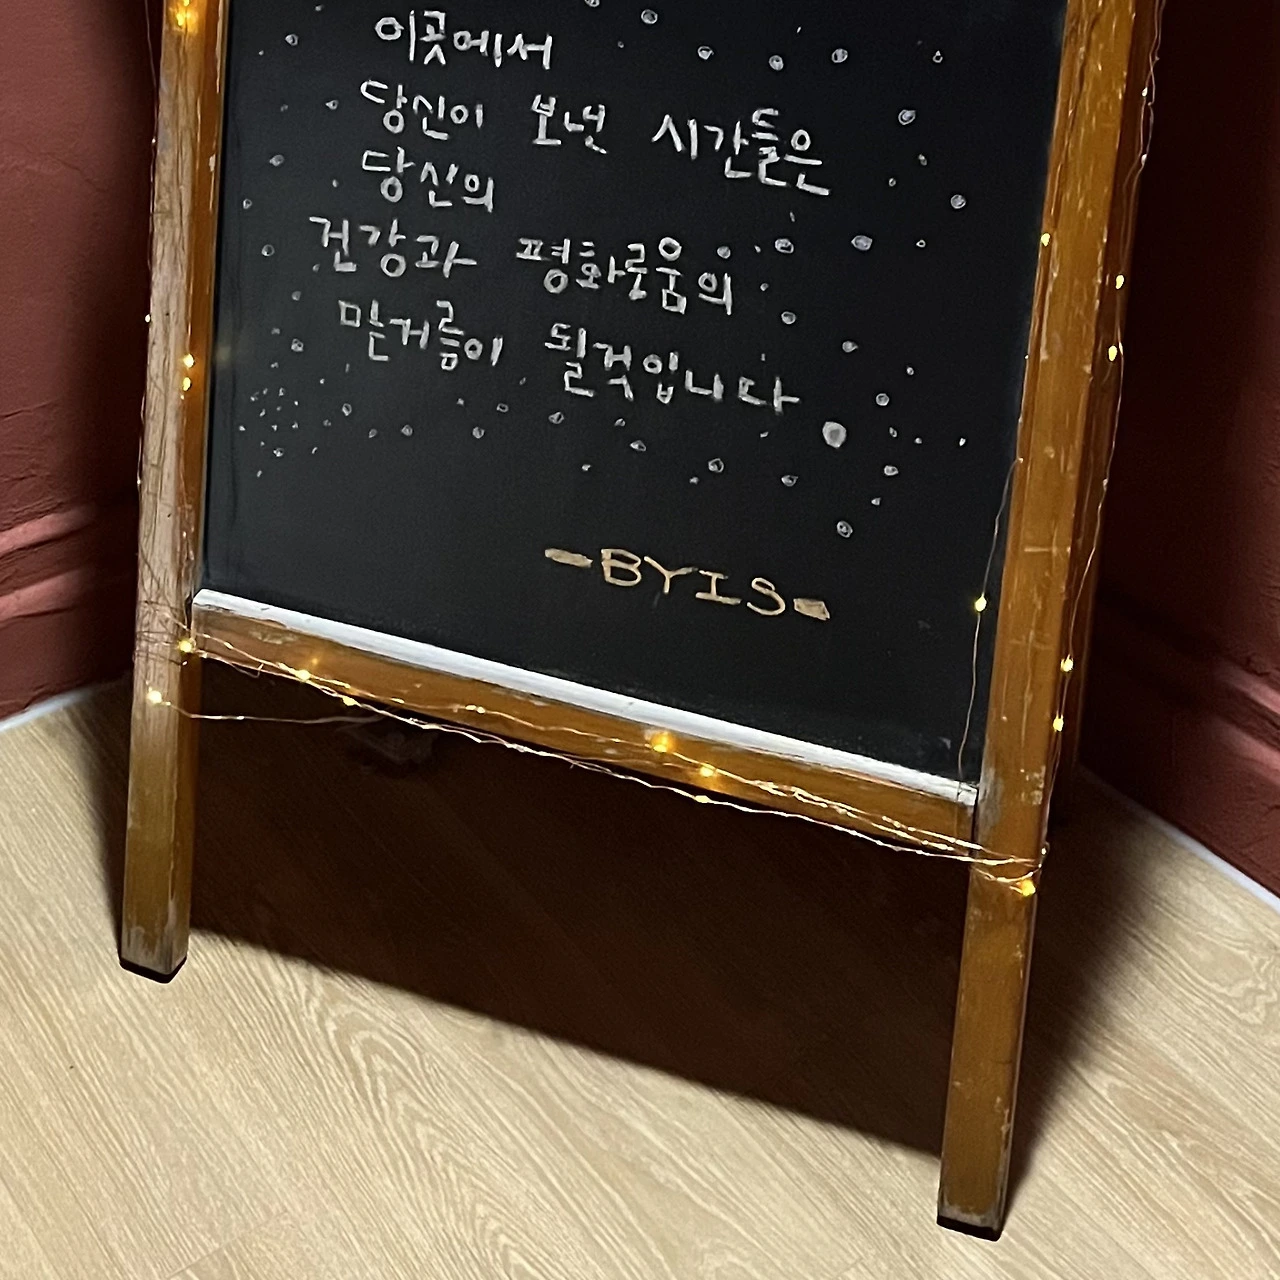 이곳에서
당신이 보낸 시간들은
당신의
건강과 평화로움의
믿거름이 될것입니다
-BYIS-